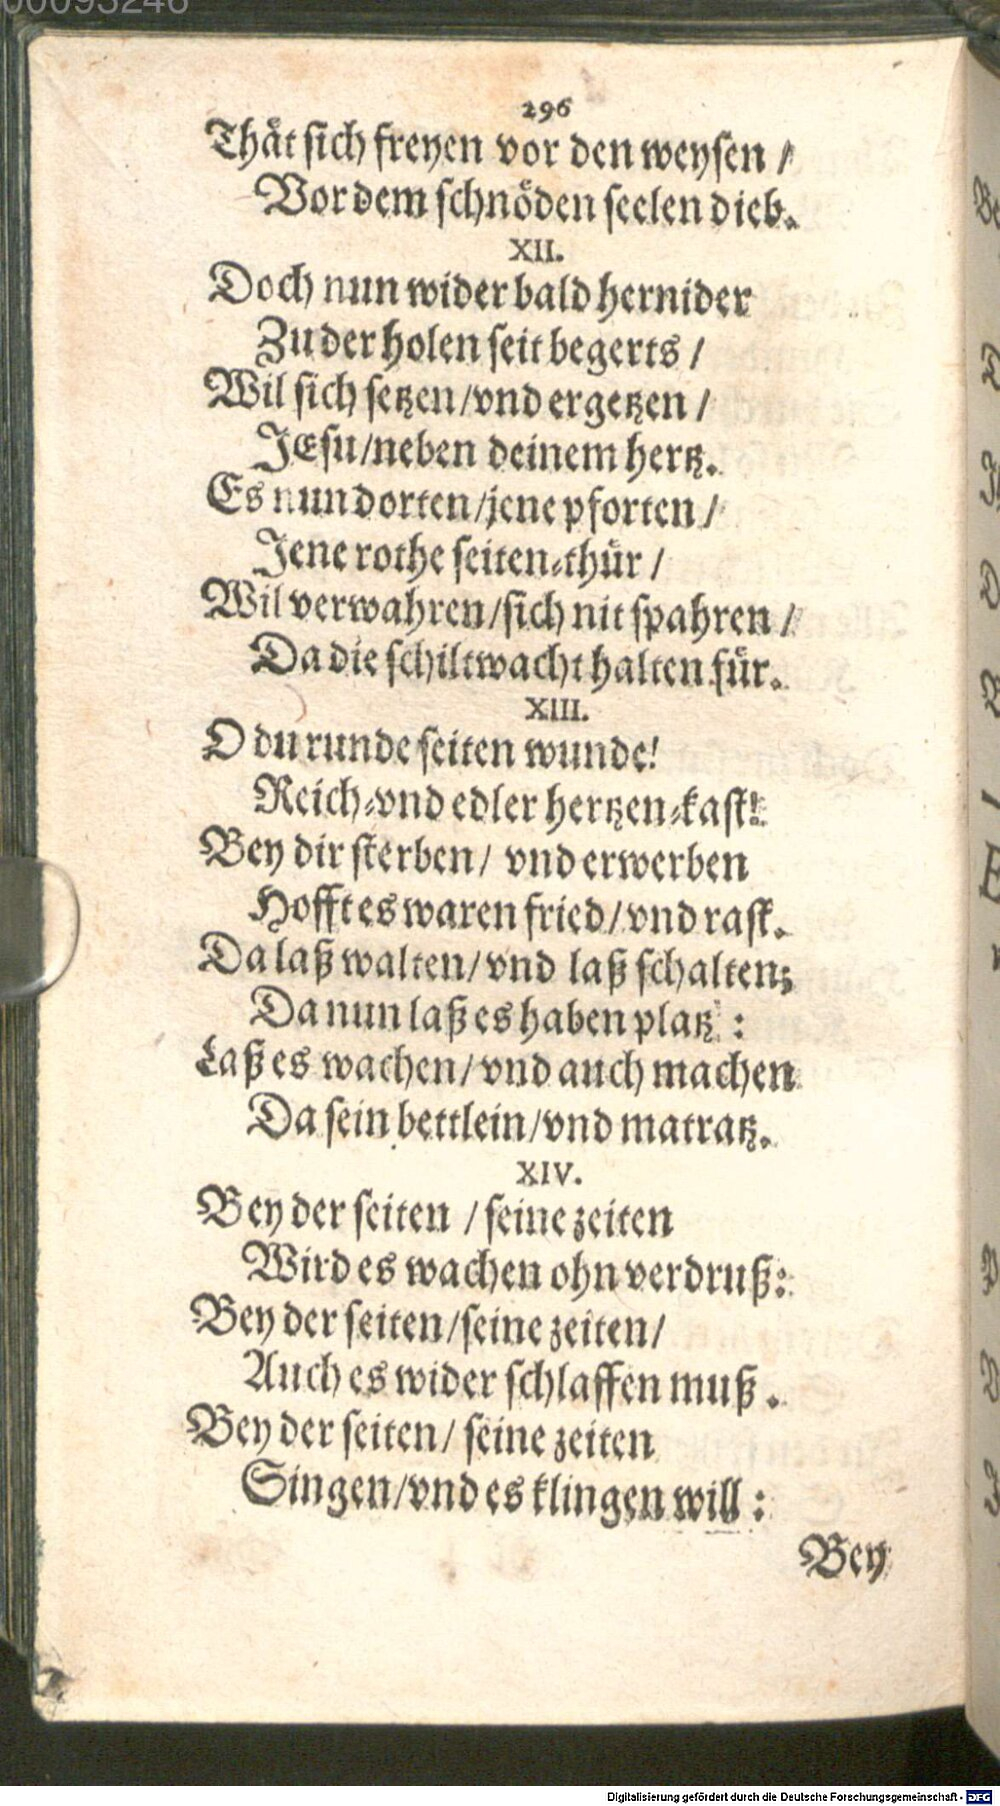 00095246
296
Thät sich freyen vor den weysen /
Vor dem schnöden seelen dieb.
XII.
Doch nun wider bald hernider
Zu der holen seit begerts /
Wil sich setzen/vnd ergetzen /
JEsu/neben deinem hertz.
Es nun dorten/jene pforten /
Jene rothe seiten-thür /
Wil verwahren/sich nit spahren /
Da die schiltwacht halten für.
XIII.
O du runde seiten wunde!
Reich-vnd edler hertzen-kast!
Bey dir sterben/ vnd erwerben
Hofft es waren fried/vnd rast.
Da laß walten/vnd laß schalten;
Da nun laß es haben platz :
Laß es wachen/vnd auch machen
Da sein bettlein/vnd matratz.
XIV.
Bey der seiten /seine zeiten
Wird es wachen ohn verdruß:
Bey der seiten/seine zeiten/
Auch es wider schlaffen muß.
Bey der seiten/ seine zeiten
Singen/vnd es klingen will :
Bey
Digitalisierung gefördert durch die Deutsche Forschungsgemeinschaft - DFG